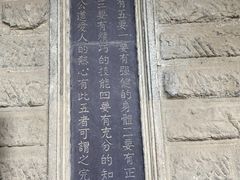 有五要一要有強健的身體二要有正
三要有精巧的技能四要有充分的知
公道愛人的熱心有此五者可謂之完